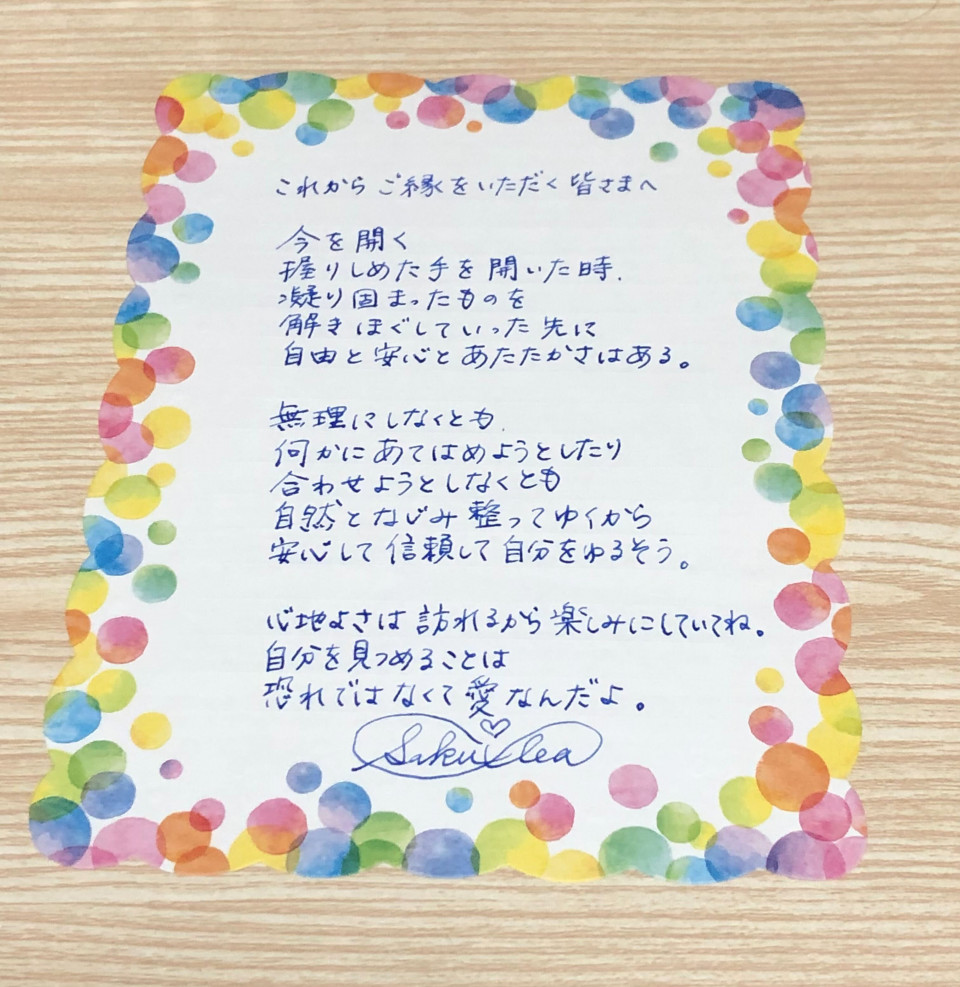 これから ご縁をいただく 皆さまへ
今を開く
握りしめた手を開いた時、
凝り固まったものを
解きほぐしていった先に
自由と安心とあたたかさはある。
無理にしなくとも、
何かにあてはめようとしたり
合わせようとしなくとも
自然となじみ整ってゆくから
安心して信頼して自分をゆるそう。
心地よさは訪れるから楽しみにしていてね。
自分を見つめることは
恐れではなくて愛なんだよ。